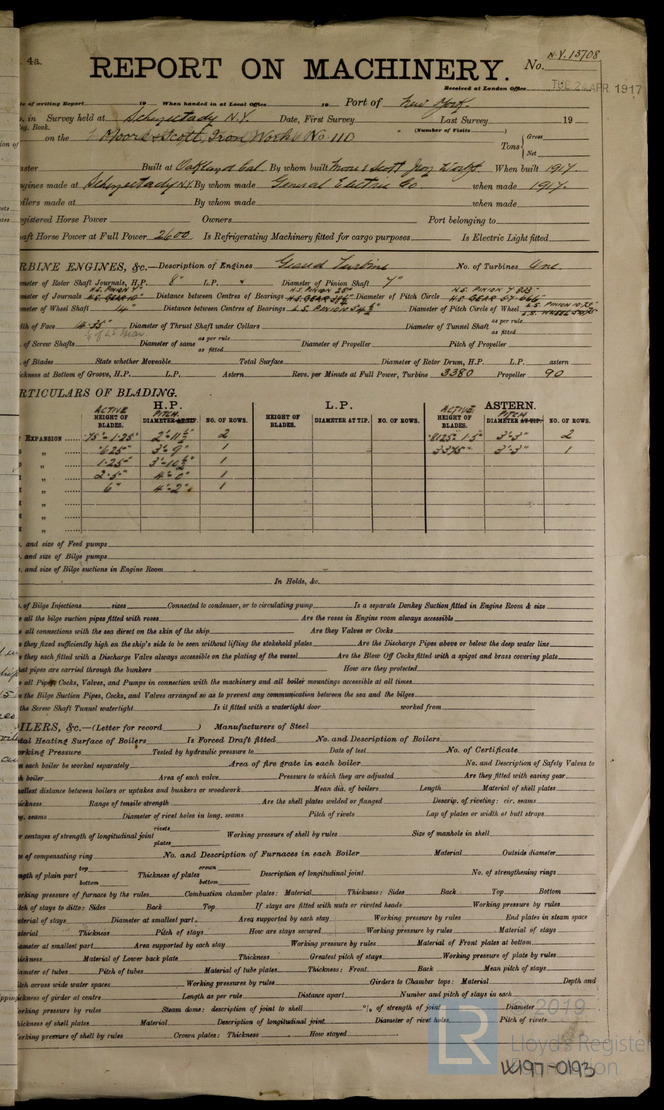 4a.
REPORT ON MACHINERY.
No. N.Y. 15708
Received at London Office
TUE 24 APR 1917
of writing Report 19 When handed in at Local Office 19 Port of New York
in Survey held at Schenectady N.Y. Date, First Survey Last Survey 19
Book.
(Number of Visits )
on the Moore & Scott, Iron Works No 110
Tons { Gross
Net
Built at Oakland Cal. By whom built Moore & Scott Iron Works When built 1917.
made at Schenectady N.Y. By whom made General Electric Co when made 1917.
made at By whom made when made
Horse Power Owners Port belonging to
Horse Power at Full Power 2600 Is Refrigerating Machinery fitted for cargo purposes Is Electric Light fitted
ENGINES, &c.—Description of Engines Geared Turbine No. of Turbines One
of Rotor Shaft Journals, H.P. 8" L.P. Diameter of Pinion Shaft 7"
of Journals Distance between Centres of Bearings Diameter of Pitch Circle
of Wheel Shaft 14" Distance between Centres of Bearings Diameter of Pitch Circle of Wheel
of Face Diameter of Thrust Shaft under Collars Diameter of Tunnel Shaft as per rule
as fitted
of Screw Shafts Diameter of same as per rule
as fitted Diameter of Propeller Pitch of Propeller
of Blades State whether Moveable Total Surface Diameter of Rotor Drum, H.P. L.P. astern
at Bottom of Groove, H.P. L.P. Astern Revs. per Minute at Full Power, Turbine 3380 Propeller 90
PARTICULARS OF BLADING.
H.P. L.P. ASTERN.
ACTIVE HEIGHT OF BLADES. PITCH DIAMETER AT TIP. NO. OF ROWS. HEIGHT OF BLADES. DIAMETER AT TIP. NO. OF ROWS. ACTIVE HEIGHT OF BLADES. PITCH DIAMETER AT TIP. NO. OF ROWS.
EXPANSION .75"-1.25" 2'-11½" 2 .8125-1.5" 3'-3" 2
" .625" 3'-9" 1 3.375" 3'-3" 1
" 1.25" 3'-10½" 1
" 2.5" 4'-0" 1
" 6" 4'-2" 1
"
"
"
and size of Feed pumps
and size of Bilge pumps
and size of Bilge suctions in Engine Room
In Holds, &c.
of Bilge Injections sizes Connected to condenser, or to circulating pump Is a separate Donkey Suction fitted in Engine Room & size
all the bilge suction pipes fitted with roses Are the roses in Engine room always accessible
all connections with the sea direct on the skin of the ship Are they Valves or Cocks
they fixed sufficiently high on the ship's side to be seen without lifting the stokehold plates Are the Discharge Pipes above or below the deep water line
they each fitted with a Discharge Valve always accessible on the plating of the vessel Are the Blow Off Cocks fitted with a spigot and brass covering plate
pipes are carried through the bunkers How are they protected
all Pipes, Cocks, Valves, and Pumps in connection with the machinery and all boiler mountings accessible at all times
the Bilge Suction Pipes, Cocks, and Valves arranged so as to prevent any communication between the sea and the bilges
the Screw Shaft Tunnel watertight Is it fitted with a watertight door worked from
BOILERS, &c.—(Letter for record ) Manufacturers of Steel
Heating Surface of Boilers Is Forced Draft fitted No. and Description of Boilers
Working Pressure Tested by hydraulic pressure to Date of test No. of Certificate
each boiler be worked separately Area of fire grate in each boiler No. and Description of Safety Valves to
boiler Area of each valve Pressure to which they are adjusted Are they fitted with easing gear
distance between boilers or uptakes and bunkers or woodwork Mean dia. of boilers Length Material of shell plates
Range of tensile strength Are the shell plates welded or flanged Descrip. of riveting: cir. seams
seams Diameter of rivet holes in long. seams Pitch of rivets Lap of plates or width of butt straps
centages of strength of longitudinal joint rivets
plates Working pressure of shell by rules Size of manhole in shell
of compensating ring No. and Description of Furnaces in each Boiler Material Outside diameter
of plain part top
bottom Thickness of plates crown
bottom Description of longitudinal joint No. of strengthening rings
pressure of furnace by the rules Combustion chamber plates: Material Thickness: Sides Back Top Bottom
of stays to ditto: Sides Back Top If stays are fitted with nuts or riveted heads Working pressure by rules
of stays Diameter at smallest part Area supported by each stay Working pressure by rules End plates in steam space
Thickness Pitch of stays How are stays secured Working pressure by rules Material of stays
at smallest part Area supported by each stay Working pressure by rules Material of Front plates at bottom
Material of Lower back plate Thickness Greatest pitch of stays Working pressure of plate by rules
of tubes Pitch of tubes Material of tube plates Thickness: Front Back Mean pitch of stays
across wide water spaces Working pressures by rules Girders to Chamber tops: Material Depth and
of girder at centre Length as per rule Distance apart Number and pitch of stays in each
pressure by rules Steam dome: description of joint to shell % of strength of joint Diameter
of shell plates Material Description of longitudinal joint Diameter of rivet holes Pitch of rivets
pressure of shell by rules Crown plates: Thickness How stayed
2019
LR Lloyd's Register Foundation
W197-0193